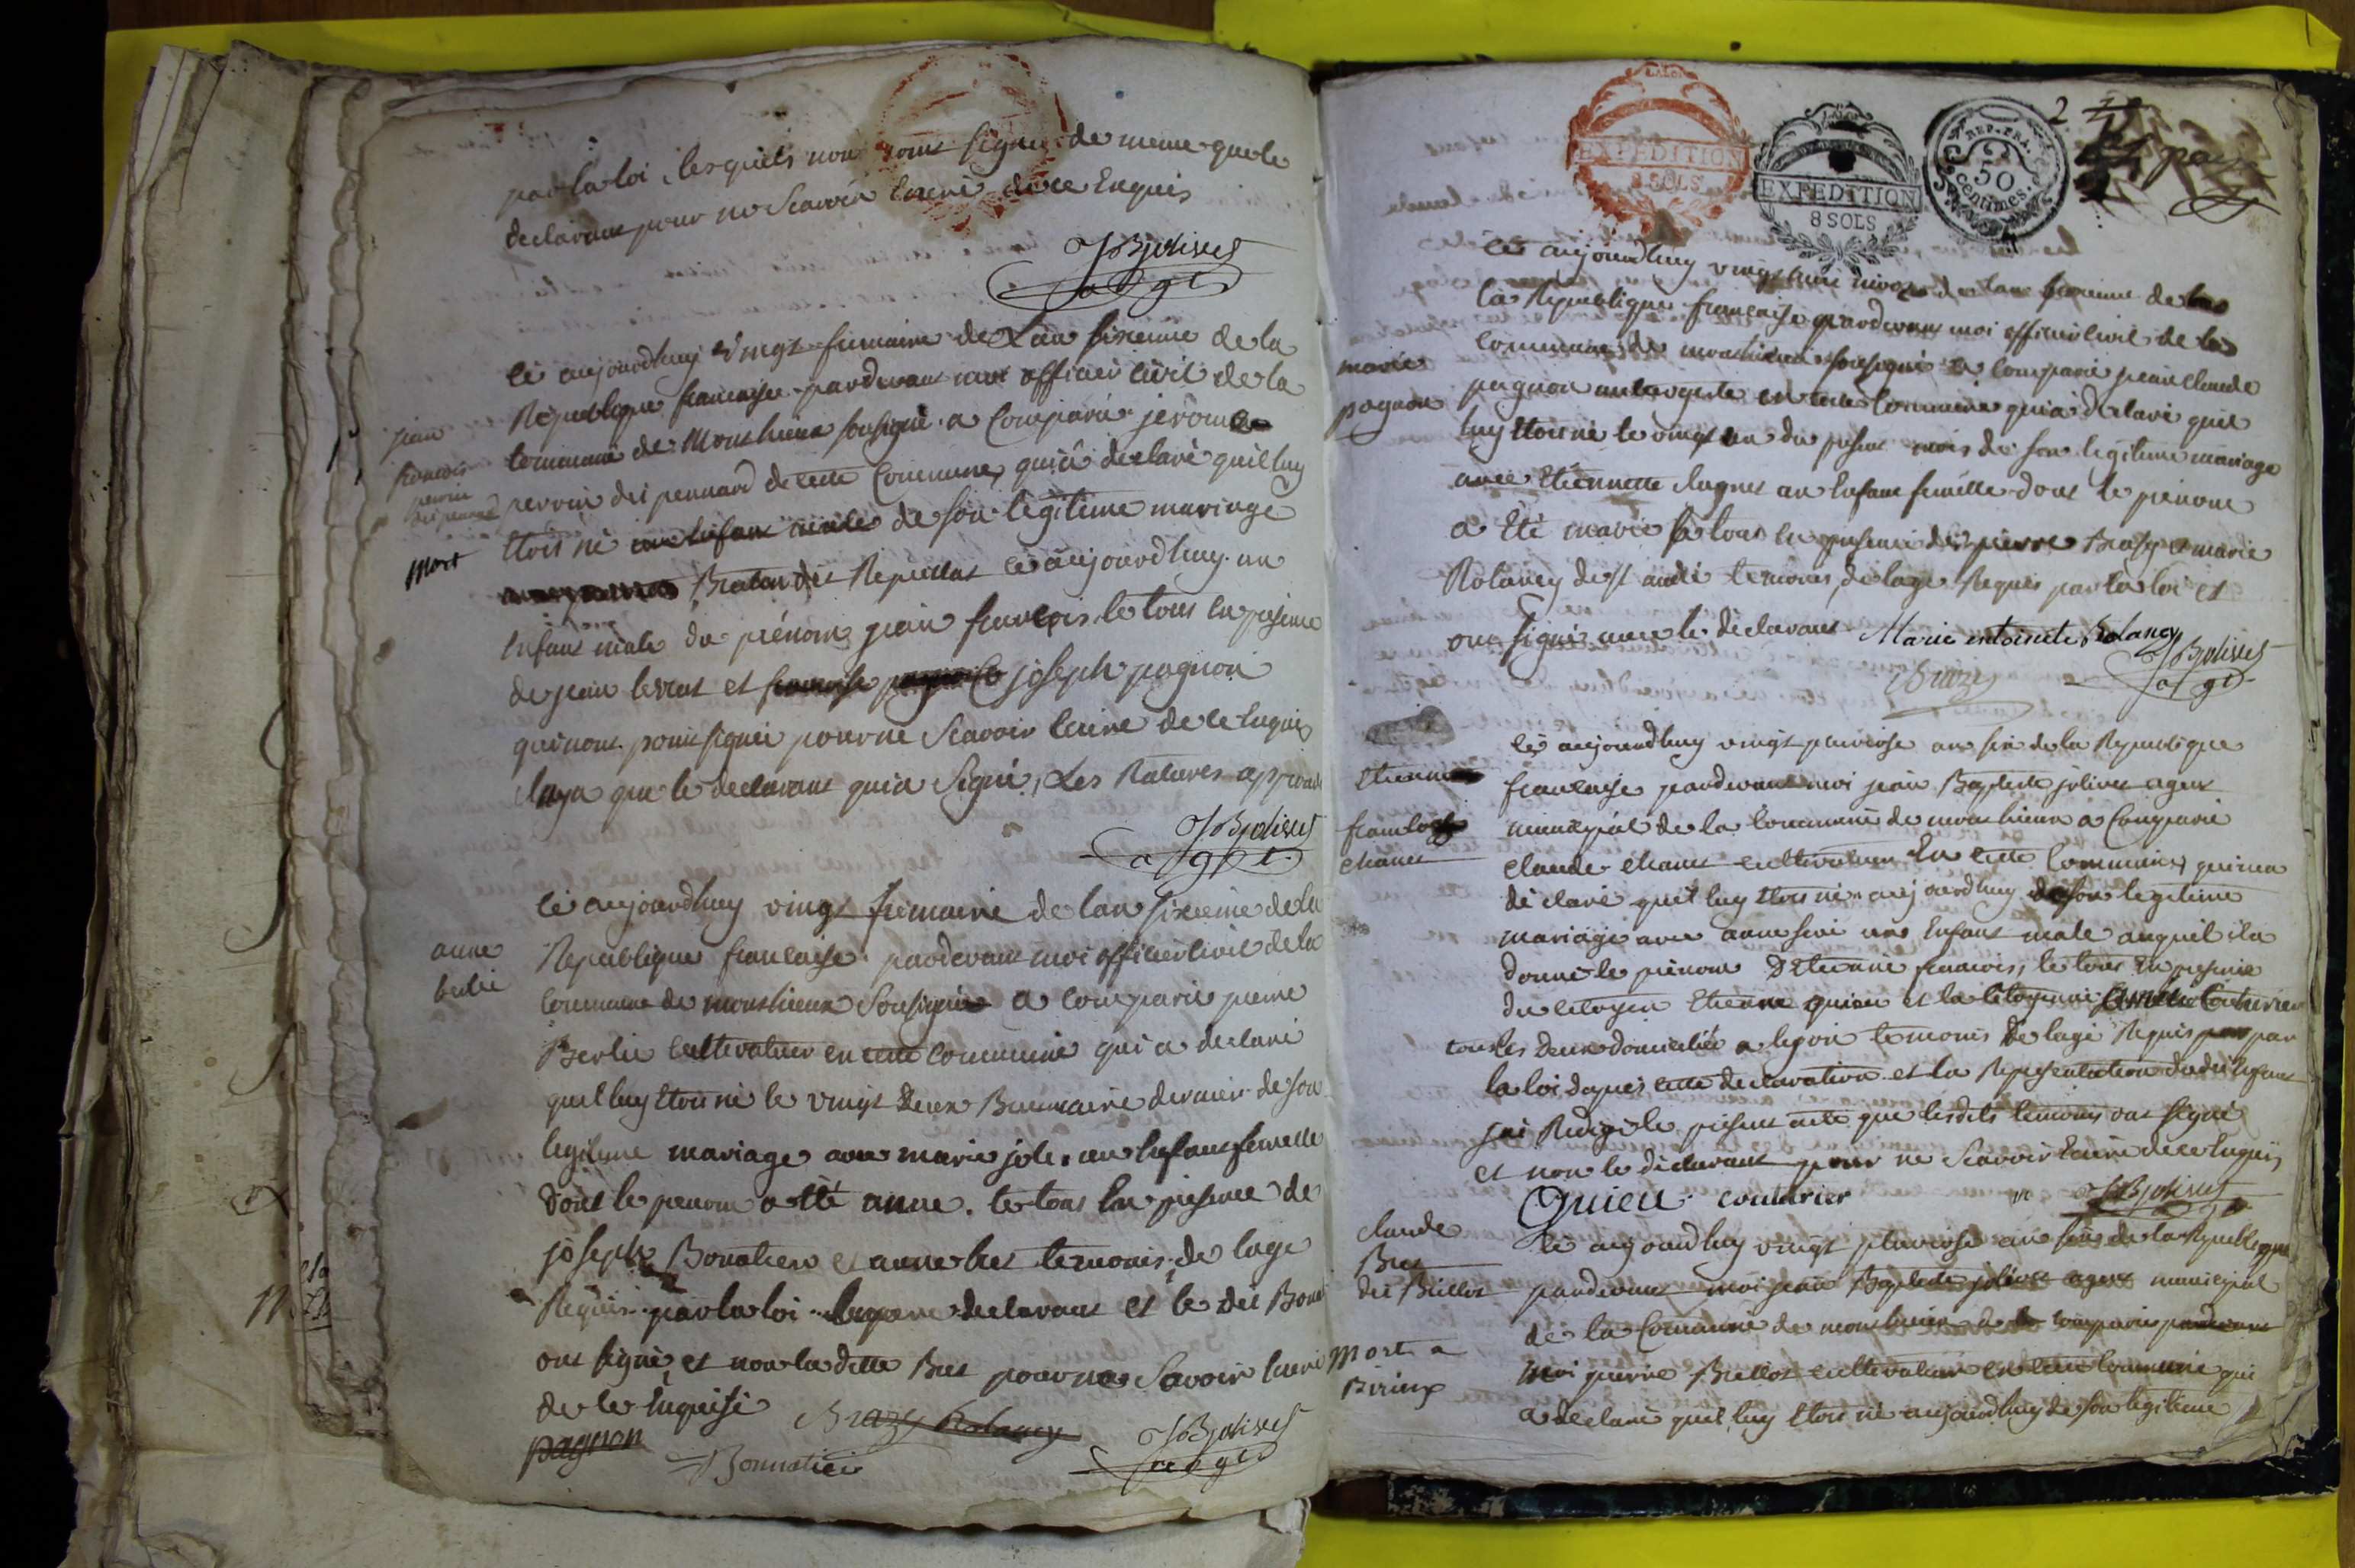 par la loi, lesquels nont signé de meme que le
declarant pour ne Scavoir Ecrire de ce Enquis
JBjolivet
agt
Ce aujourdhuy vingt frimaire de Lan sixieme de la
Republique francaise pardevant moi officier civil de la
commune de Monthieux sousigné a Comparu jérome
jean
francois
perrin
dit pennard
perroin dit pennard de cette Commune, qui a declaré quil luy
mort
Etoit né un Enfant male de son légitime mariage
Repillat ce aujourdhuy un
Enfant male du prénom jean françois, le tout en presence
de jean et francoise joseph pagnon
qui nont point signé pour ne Scavoir Ecrire de ce Enquis
que le declarant qui a Signé, Les Ratures
JBjolivet
agt
Ce aujourdhuy vingt frimaire de lan sixieme de la
anne
berlie
Republique francaise pardevant moi officier civil de la
Commune de monthieux Sousigné a comparu pierre
Berlie Cultivateur en cette commune qui a declaré
quil luy Etoit né le vingt deux Brumaire dernier de son
legitime mariage avec marie jole un Enfant femelle
dont le prenom a été anne. le tout En presence de
joseph Bonatier et anne bret temoins de lage
Requis par la loi le pere declarant et le dit
ont signé, et non la ditte Bret pour ne Savoir Ecrire
de ce Enquise
pagnon
Brazy Rolancy
Bonnatier
JBjolivet
agt
LA LOI
EXPEDITION
8 SOLS
LA LOI
EXPEDITION
8 SOLS
REP. FRA.
50
centimes.
2
Ce aujourdhuy vingt nivose de lan sixieme de la
la Republique francaise pardevant moi officier civil de la
commune de monthieux sousigné a comparu jean claude
marie
pagnon
pagnon aubergiste en cette Commune qui a declaré quil
luy Etoit né le vingt un du present mois de son legitime mariage
avec Etiennette un Enfant femelle dont le prenom
a Eté marie le tout en presence de pierre Brazy et marie
Rolancy de St andré temoins, de lage Requis par la loi et
ont signé avec le declarant
Marie entoinete Rolancy
Brazy
JBjolivet
agt
Ce aujourdhuy vingt pluviose an six de la Republique
Etienne
francaise pardevant moi jean Baptiste jolivet agent
francois
municipal de la Commune de monthieux a Comparu
chanet
claude chanet cultivateur En cette Commune, qui ma
déclaré quil luy Etoit né aujourdhuy de son legitime
mariage avec anne un Enfant male auquel il a
donné le prénom D'Etienne francois, le tout en presence
du citoyen Etienne quieu et la citoyenne Couturier
tous les deux domiciliés a lyon temoins de lage Requis par
la loi dapres cette declaration et la Representation dudit Enfant
jai Redigé le present acte que lesdits temoins ont signé
et non le declarant pour ne Scavoir Ecrire de ce Enquis
Quieu
couturier
JBjolivet
claude
Bret
dit Brillot
Ce aujourdhuy vingt pluviose an six de la Republique
pardevant moi jean Baptiste jolivet agent municipal
de la Commune de monthieux a comparu pardevant
Mort a
Birieux
moi pierre Brillot cultivateur en cette Commune qui
a declaré quil luy Etoit né aujourdhuy de son legitime